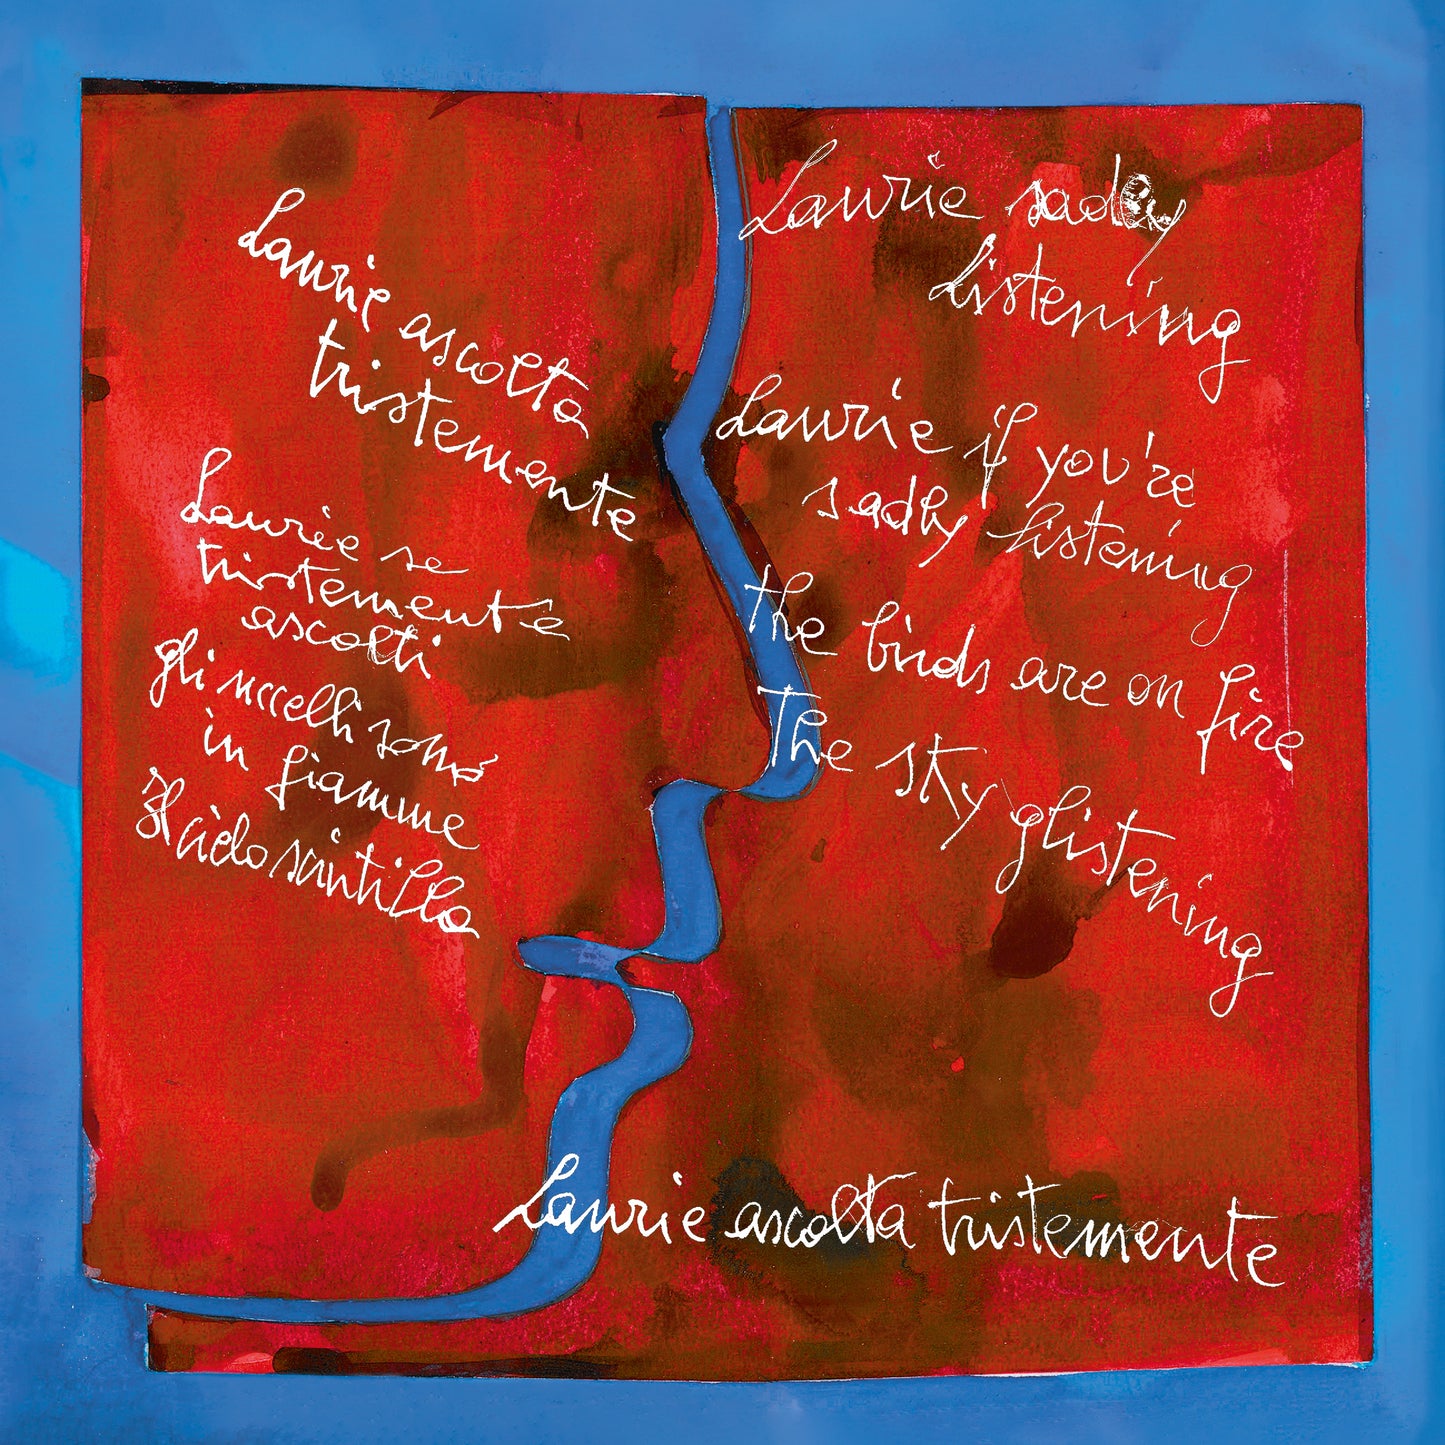 Laurie ascolta
tristemente
Laurie se
tristemente
ascolti
gli uccelli sono
in fiamme
Il cielo scintilla
Laurie sadly
listening
Laurie if you're
sadly listening
the birds are on fire
The sky glistening
Laurie ascolta tristemente